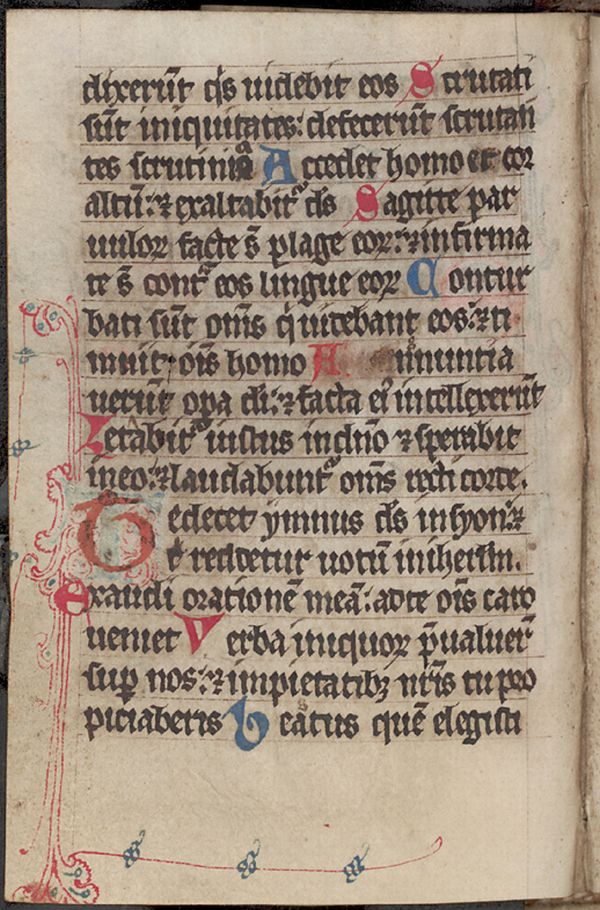 dixerūt q̄s uidebit eos Scrutati
sūt iniquitates: defecerūt scrutan
tes scrutinia Accedet homo et cor
altū: ⁊ exaltabit᷑ ds̄ Sagitte par
uuloꝝ facte s̄ plage eoꝝ: ⁊ infirma
te s̄ cont͛ eos lingue eoꝝ Contur
bati sūt om̄s q̇ uidebant eos: ⁊ ti
muit oīs homo Annuntia
uerūt opa di: ⁊ facta ei᷒ intellexerūt
Letabit᷑ iustus in dn̄o ⁊ sperabit
in eo: ⁊ laudabunt᷑ om̄s recti corde.
Te decet ymnus ds̄ in syon: ⁊
t̄ reddetur uotū in iherlm̄.
exaudi orationē meā: ad te oīs caro
ueniet Verba iniquoꝝ p̄ualuer̄
sup nos: ⁊ impietatibꝫ nr̄is tu pro
piciaberis beatus quē elegisti